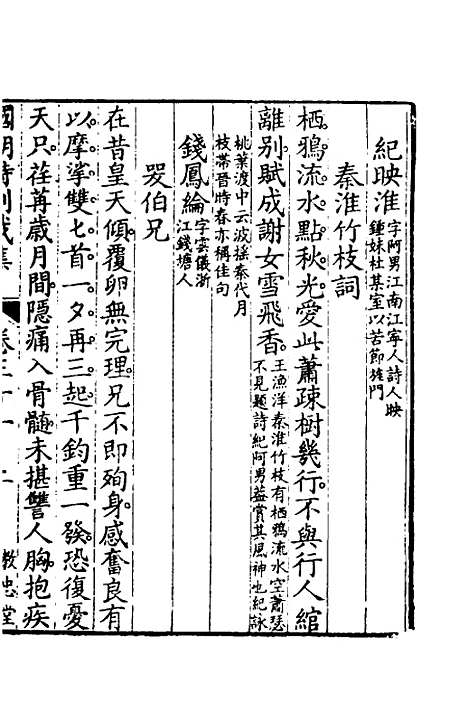 紀映淮字阿男江南江寧人詩人映
鍾妹杜某室以苦節旌門
秦淮竹枝詞
栖鴉流水點秋光愛此蕭疎樹幾行不與行人綰
離別賦成謝女雪飛香王漁洋秦淮竹枝有栖鴉流水空蕭瑟
不見題詩紀阿男葢賞其風神也紀詠
桃葉渡中云波摇秦代月
枝帶晉時春亦稱佳句
錢鳳綸字雲儀浙
江錢塘人
哭伯兄
在昔皇天傾覆卵無完理兄不即殉身感奮良有
以摩挲雙匕首一夕再三起千鈞重一發恐復憂
天只荏苒歲月間隱痛入骨髓未揕讐人胸抱疾
國朝詩別裁集 卷三十一 二 教忠堂